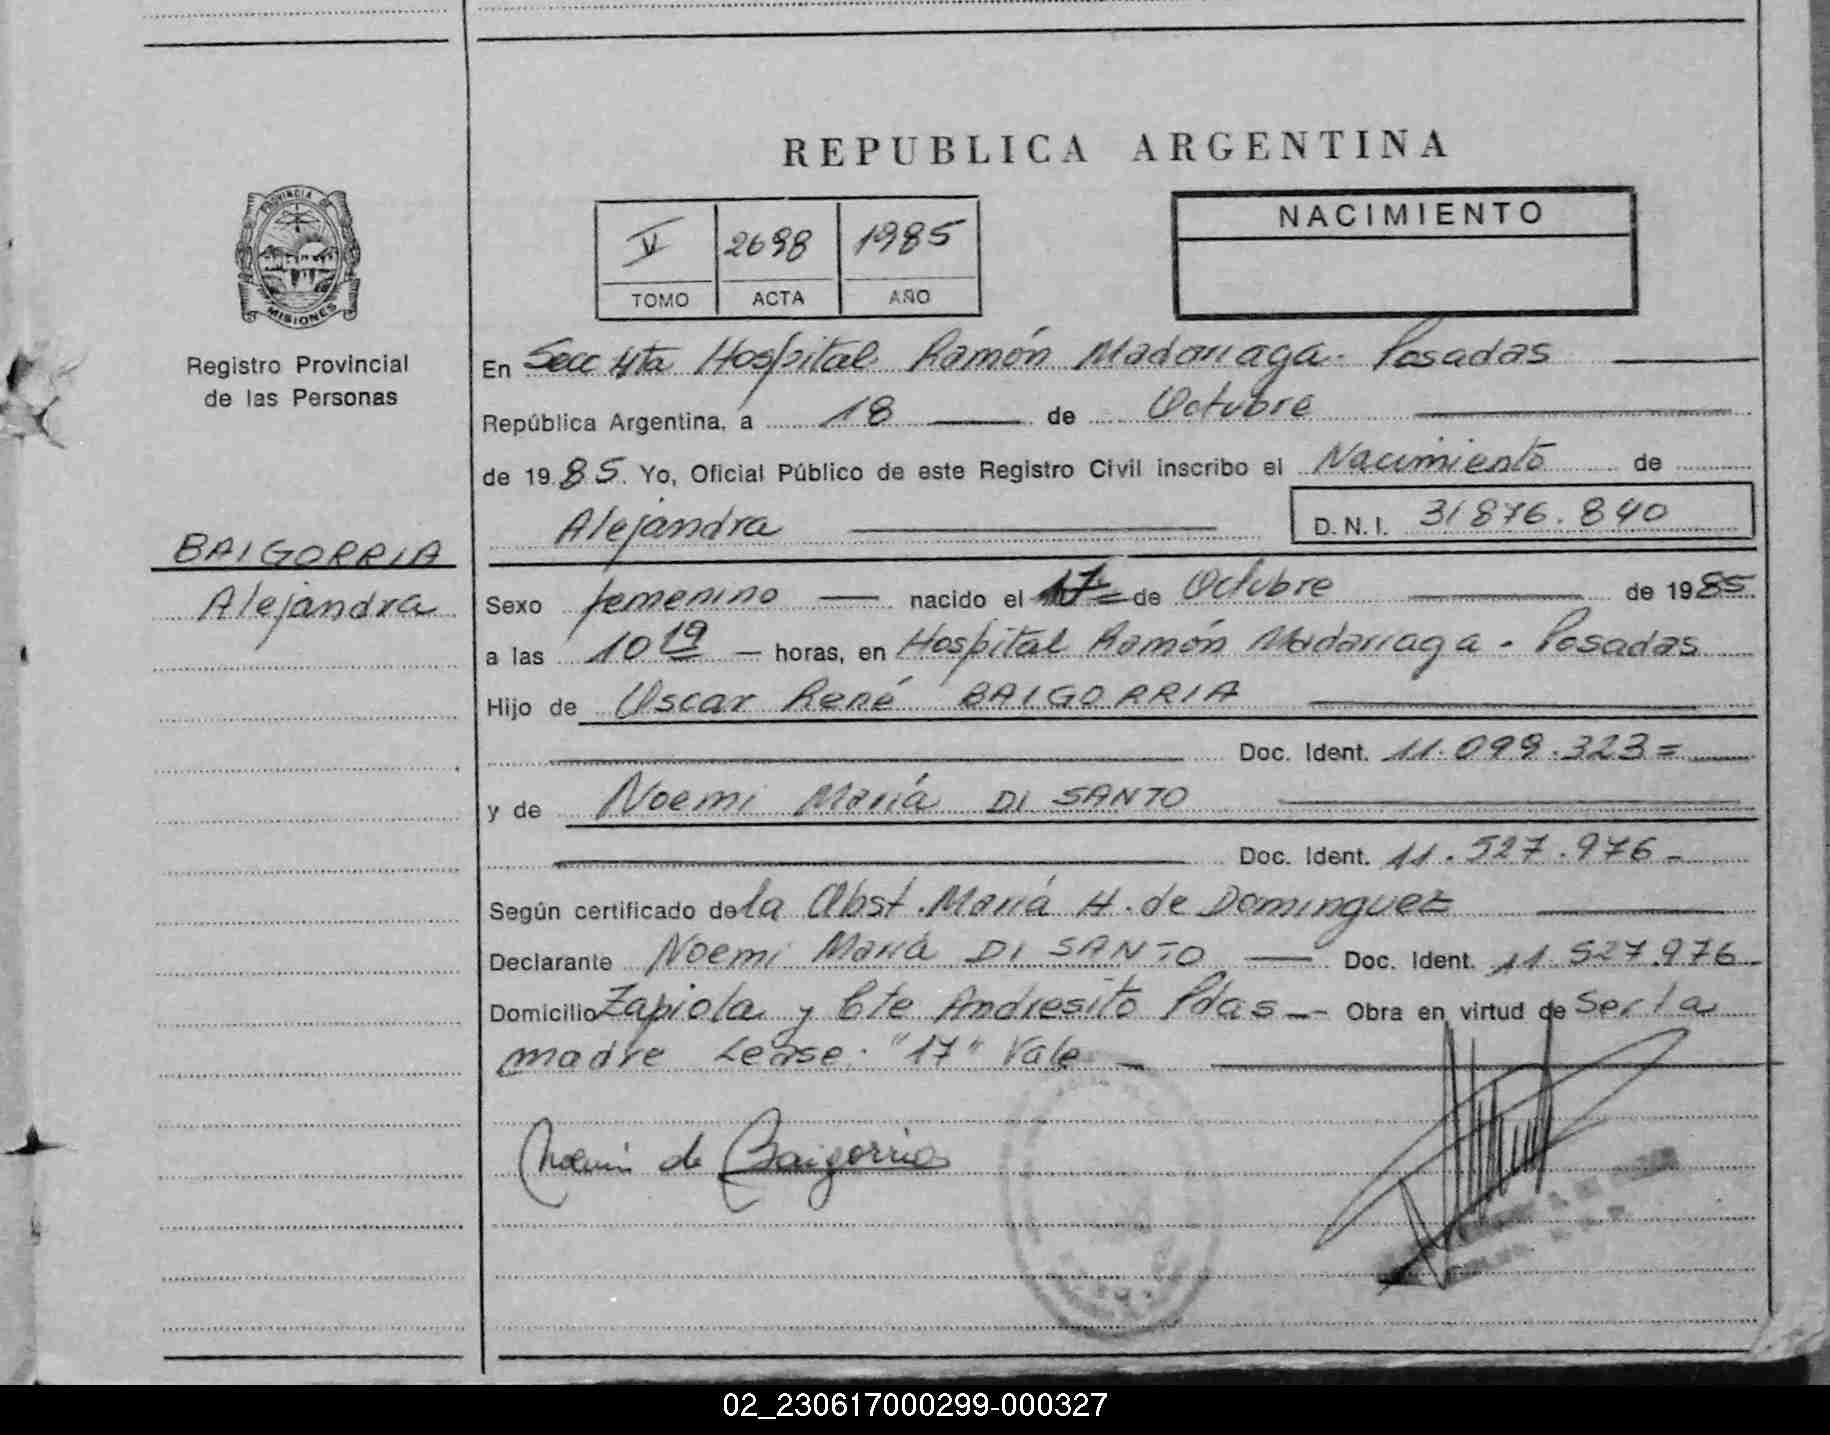 REPUBLICA ARGENTINA
PROVINCIA DE
MISIONES
Registro Provincial
de las Personas
V 2698 1985
TOMO ACTA AÑO
NACIMIENTO
En Secc 4ta Hospital Ramón Madariaga - Posadas
República Argentina, a 18 de Octubre
de 1985. Yo, Oficial Público de este Registro Civil inscribo el Nacimiento de
Alejandra D.N.I. 31876.840
BAIGORRIA
Alejandra
Sexo femenino nacido el 17 = de Octubre de 1985
a las 10 19 horas, en Hospital Ramón Madariaga - Posadas
Hijo de Oscar René BAIGORRIA
Doc. Ident. 11.099.323 =
y de Noemi María DI SANTO
Doc. Ident. 11.527.976 -
Según certificado de la Obst. María H. de Dominguez
Declarante Noemi María DI SANTO Doc. Ident. 11.527.976 -
Domicilio Zapiola y Cte Andresito Pdas - Obra en virtud de Ser la
madre Lease: "17" Vale
Noemi de Baigorria
02_230617000299-000327